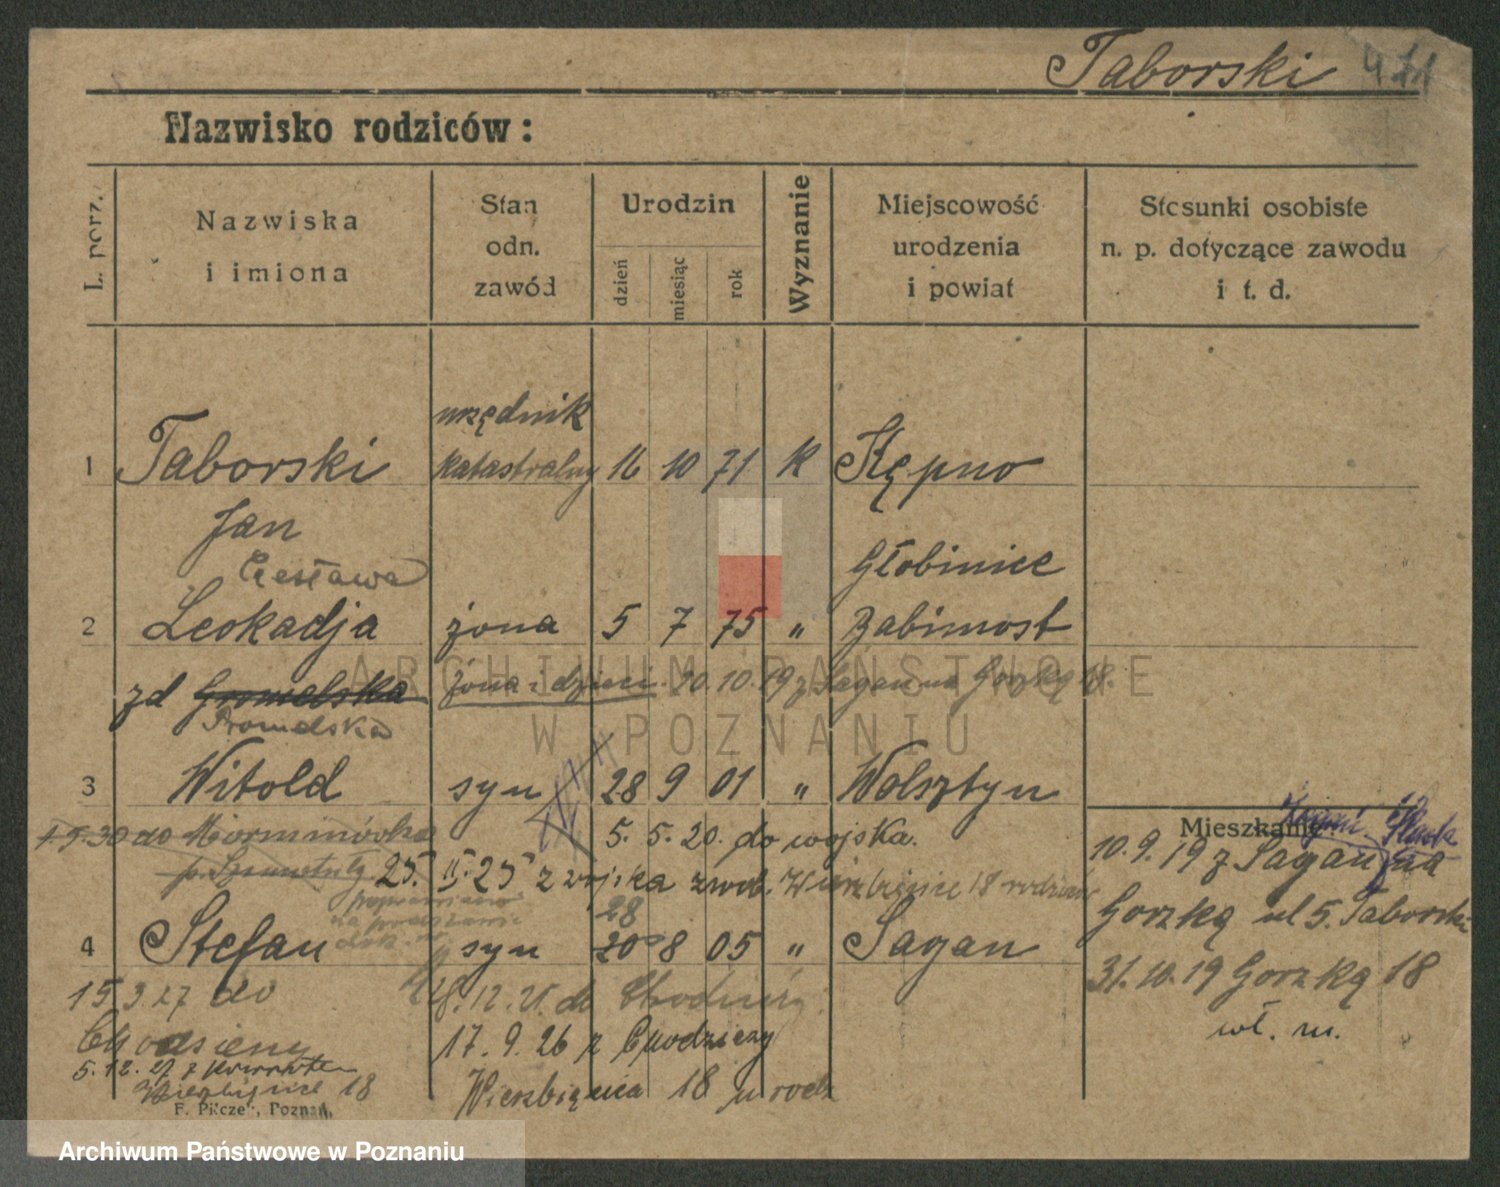 Taborski 471
Nazwisko rodziców:
L. porz.
Nazwiska
i imiona
Stan
odn.
zawód
Urodzin
dzień
miesiąc
rok
Wyznanie
Miejscowość
urodzenia
i powiat
Stosunki osobiste
n. p. dotyczące zawodu
i t. d.
urzędnik
1 Taborski katastralny 16 10 71 K Kępno
Jan
Czesława Głobinice
2 Leokadja żona 5 7 75 " Zabimost
zd żona i dzieci 20.10.19 z Sagan na Gorzką 18.
Promelska
ARCHIWUM PAŃSTWOWE
W POZNANIU
3 Witold syn 28 9 01 " Wolsztyn
1.5.30 do 5. 5. 20. do wojska.
25. II. 25 z wojska zwol. Wierzbięcice 18
28
4 Stefan syn 20 8 05 " Sagan
15.3.27 do 18.12.25. do
Chodzieży 17. 9. 26 z Chodzieży
5.12.27 z
Wierzbięcice 18 Wierzbięcice 18 u rodz
F. Pilczek, Poznań.
Mieszkanie
10.9.19 z Sagan na
Gorzką ul 5. Taborski
31.10.19 Gorzką 18
wł. m.
Archiwum Państwowe w Poznaniu